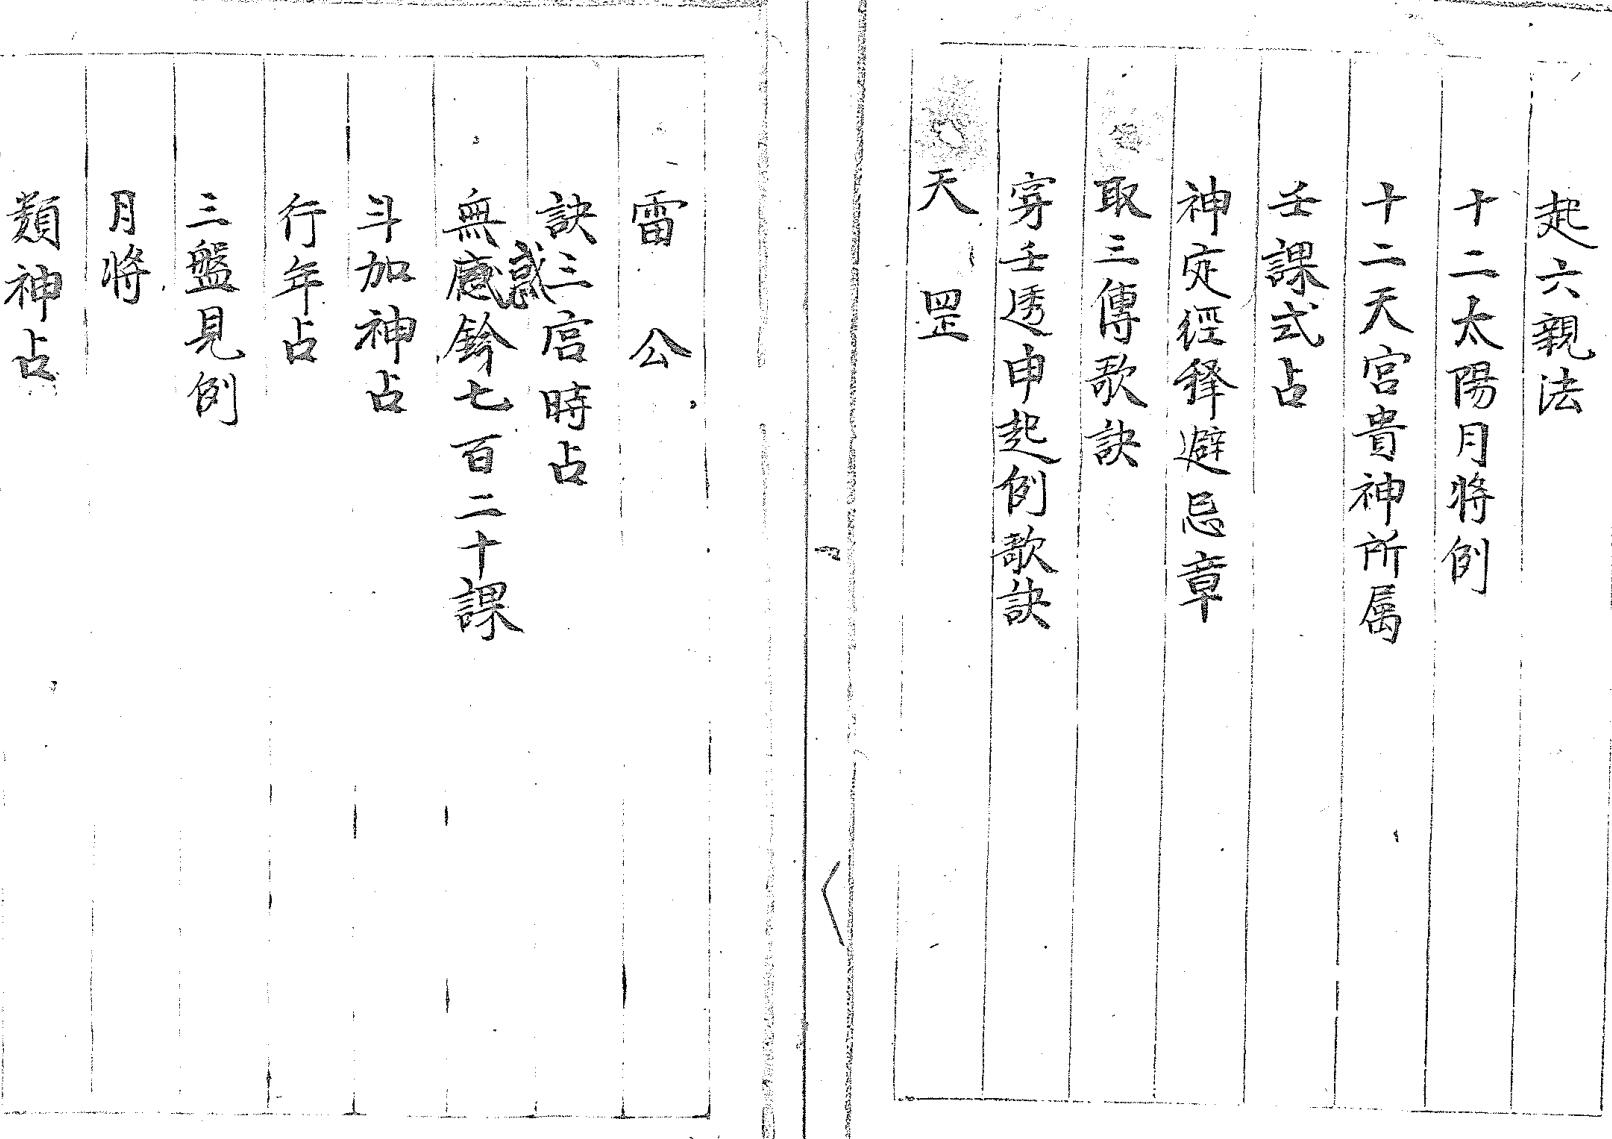 起六親法
十二太陽月將例
十二天宮貴神所属
壬課式占
神定經釋避忌章
取三傳歌訣
穿壬透申起例歌訣
天罡
雷公
訣三宮時占
無惑鈐七百二十課
斗加神占
行年占
三盤見例
月將
類神占